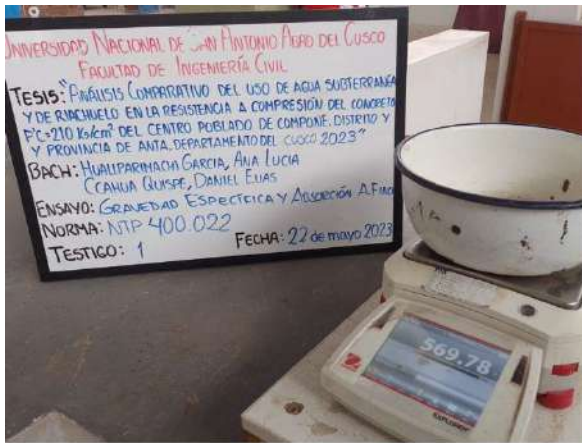 UNIVERSIDAD NACIONAL DE SAN ANTONIO ABAD DEL CUSCO
FACULTAD DE INGENIERÍA CIVIL
TESIS: "ANÁLISIS COMPARATIVO DEL USO DE AGUA SUBTERRANEA
Y DE RIACHUELO EN LA RESISTENCIA A COMPRESIÓN DEL CONCRETO
F'C=210 Kg/cm² DEL CENTRO POBLADO DE COMPONE, DISTRITO Y
Y PROVINCIA DE ANTA, DEPARTAMENTO DEL CUSCO 2023"
BACH: HUALLPARIMACHI GARCIA, ANA LUCIA
CCAHUA QUISPE, DANIEL ELIAS
ENSAYO: GRAVEDAD ESPECÍFICA Y ABSORCIÓN A. FINO
NORMA: NTP 400.022
TESTIGO: 1
FECHA: 22 de mayo 2023
569.78
OHAUS
EXPLORER